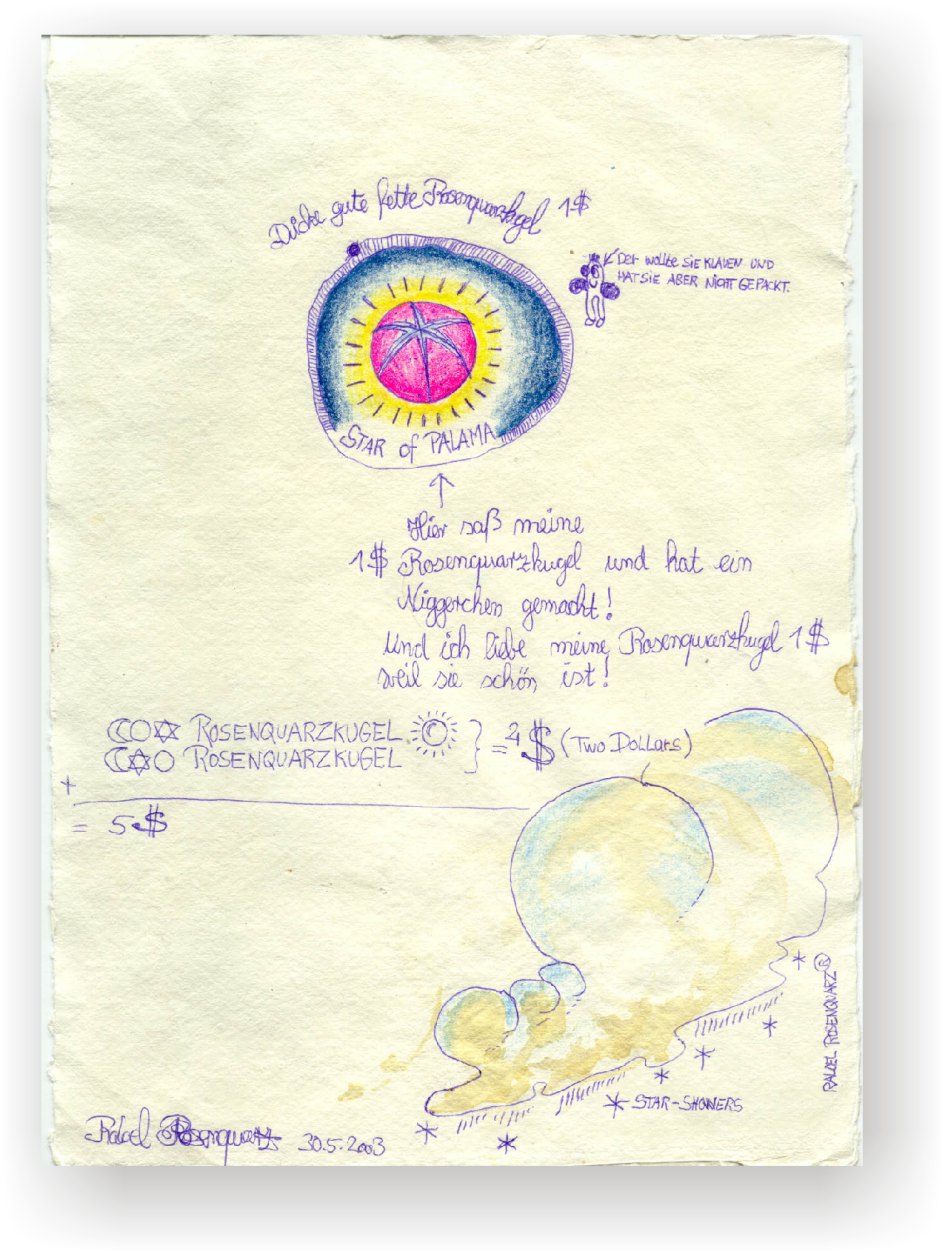 Dicke gute fette Rosenquarzkugel 1$
Der wollte sie klauen und
hat sie aber nicht gepackt.
STAR of PALAMA
Hier saß meine
1$ Rosenquarzkugel und hat ein
Niggerchen gemacht!
Und ich liebe meine Rosenquarzkugel 1$
weil sie schön ist!
ROSENQUARZKUGEL
ROSENQUARZKUGEL
= $ (Two Dollars)
+
= 5$
STAR-SHOWERS
ROSENQUARZ®
Rosenquarz 30.5.2003